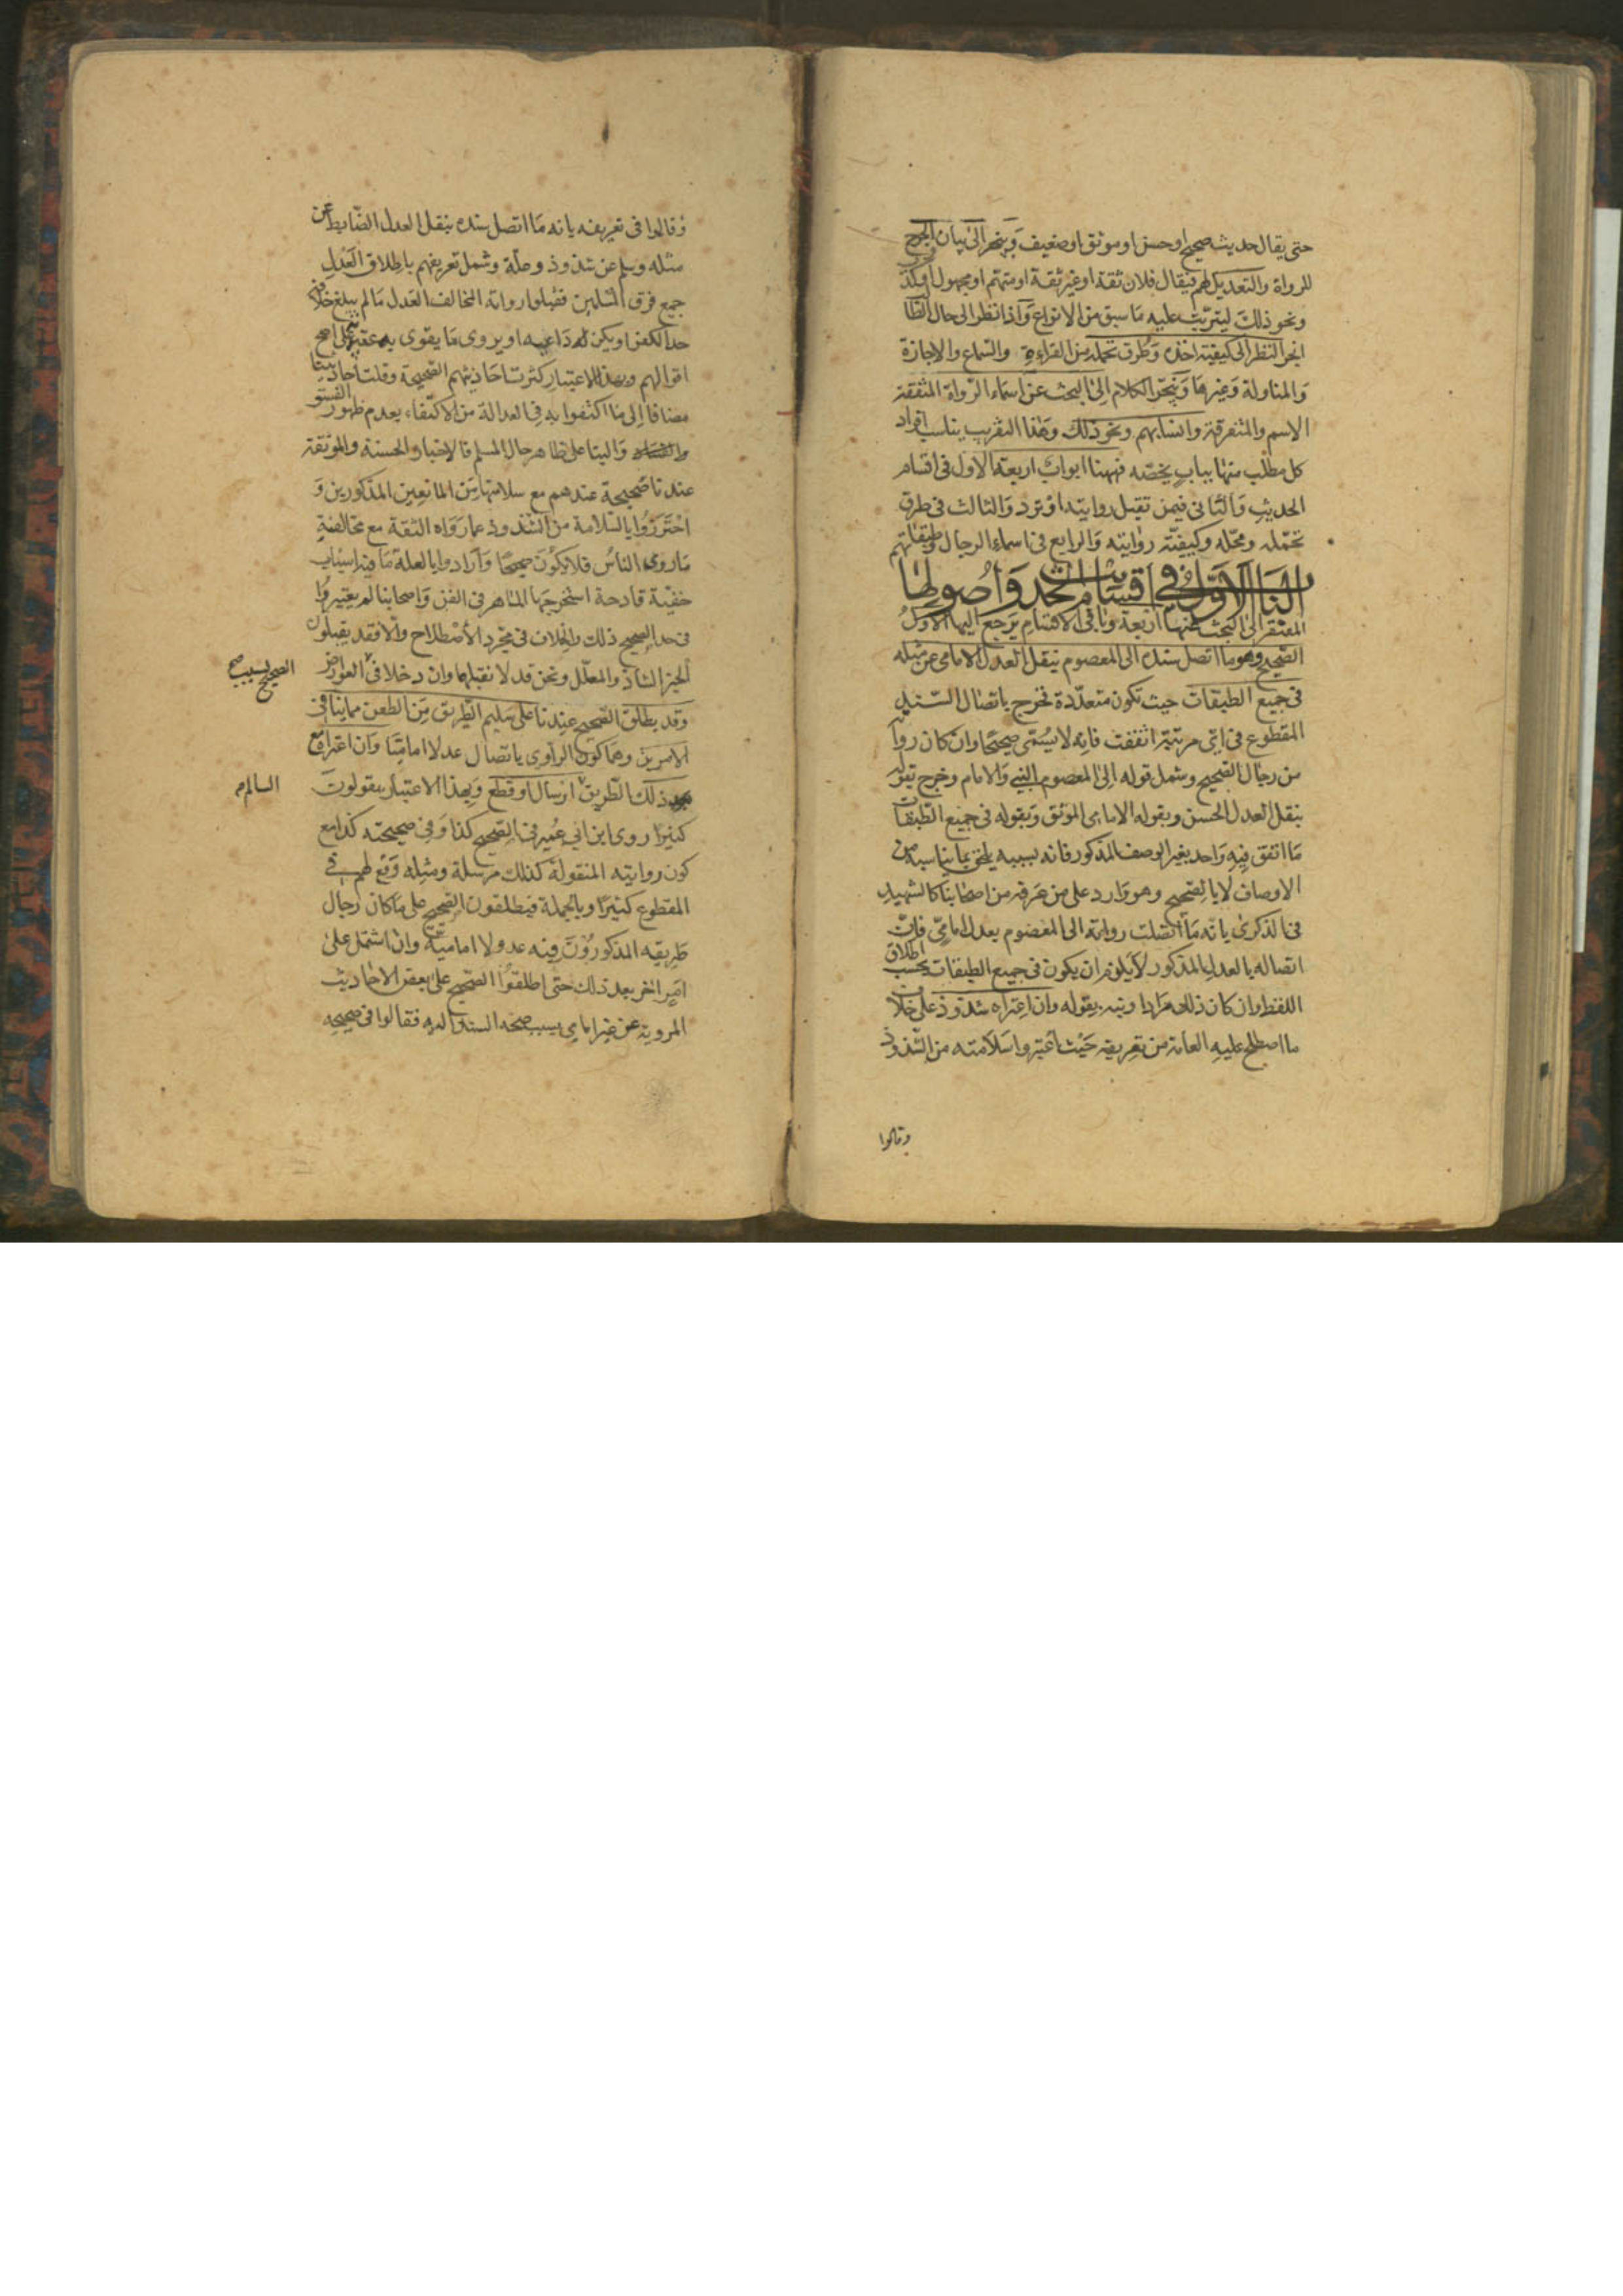 حتى يقال حديث صحيح او حسن او موثق او ضعيف وينجر الى بيان الجرح
للرواة والتعديل لهم فيقال فلان ثقة او غير ثقة او متهم او مجهول او كذوب
ونحو ذلك ليترتب عليه ما سبق من الانواع واذا نظر الى حال
انجر النظر الى كيفيته اخذه وطرق تحمله من القراءة والسماع والاجازة
والمناولة وغيرها وينجر الكلام الى البحث عن اسماء الرواة المتفقة
الاسم والمتفرقة وانسابهم ونحو ذلك وهذا التقريب يناسب افراد
كل مطلب منها بباب يخصه فههنا ابواب اربعة الاول في اقسام
الحديث والثاني فيمن تقبل روايته او ترد والثالث في طرق
تحمله ومحله وكيفية روايته والرابع في اسماء الرجال وطبقاتهم
الباب الاول في اقسام الحديث واصولها
المفتقر الى البحث عنها اربعة وباقي الاقسام يرجع اليها الاول
الصحيح وهو ما اتصل سنده الى المعصوم بنقل العدل الامامي عن مثله
في جميع الطبقات حيث تكون متعددة فخرج باتصال السند
المقطوع في اي مرتبة اتفقت فانه لا يسمى صحيحا وان كان رواته
من رجال الصحيح وشمل قوله الى المعصوم النبي والامام وخرج بقوله
بنقل العدل الحسن وبقوله الامامي الموثق وبقوله في جميع الطبقات
ما اتفق فيه واحد بغير الوصف المذكور فانه بسببه يلحق بما يناسبه من
الاوصاف لا بالصحيح وهو وارد على من عرفه من اصحابنا كالشهيد
في الذكرى بانه ما اتصلت روايته الى المعصوم بعدل امامي فان
اتصاله بالعدل المذكور لا يلزم ان يكون في جميع الطبقات بحسب اطلاق
اللفظ وان كان ذلك مرادا ونبه بقوله وان اعتراه شذوذ على خلاف
ما اصطلح عليه العامة من تعريفه حيث اعتبروا سلامته من الشذوذ
وقالوا
وقالوا في تعريفه بانه ما اتصل سنده بنقل العدل الضابط عن
مثله وسلم عن شذوذ وعلة وشمل تعريفهم باطلاق العدل
جميع فرق المسلمين فقبلوا رواية المخالف العدل ما لم يبلغ خلافه
حد الكفر او يكن له داعية او يروي ما يقوى به على اصح
اقوالهم وبهذا الاعتبار كثرت احاديثهم الصحيحة وقلت احاديثنا
مضافا الى ما اكتفوا به في العدالة من الاكتفاء بعدم ظهور الفسق
والبناء على ظاهر حال المسلم فالاخبار الحسنة والموثقة
عندنا صحيحة عندهم مع سلامتها من المانعين المذكورين و
احترزوا بالسلامة من الشذوذ عما رواه الثقة مع مخالفة
ما روى الناس فلا يكون صحيحا وارادوا بالعلة ما فيه اسباب
خفية قادحة استخرجها الماهر في الفن واصحابنا لم يعتبروا
في حد الصحيح ذلك والخلاف في مجرد الاصطلاح والا فقد يقبلون
الخبر الشاذ والمعلل ونحن قد لا نقبلهما وان دخلا في العوارض
الصحيح بسبب صح
وقد يطلق الصحيح عندنا على سليم الطريق من الطعن بما ينافي
الامرين وهما كون الراوي باتصال عدلا اماميا وان اعتراه مع
ذلك الطريق ارسال او قطع وبهذا الاعتبار يقولون
السالم
كثيرا روى ابن ابي عمير في الصحيح كذا وفي صحيحته كذا مع
كون روايته المنقولة كذلك مرسلة ومثله وقع لهم في
المقطوع كثيرا وبالجملة فيطلقون الصحيح على ما كان رجال
طريقه المذكورون فيه عدولا امامية وان اشتمل على
امر اخر بعد ذلك حتى اطلقوا الصحيح على بعض الاحاديث
المروية عن غير امامي بسبب صحة السند اليه فقالوا في صحيحه